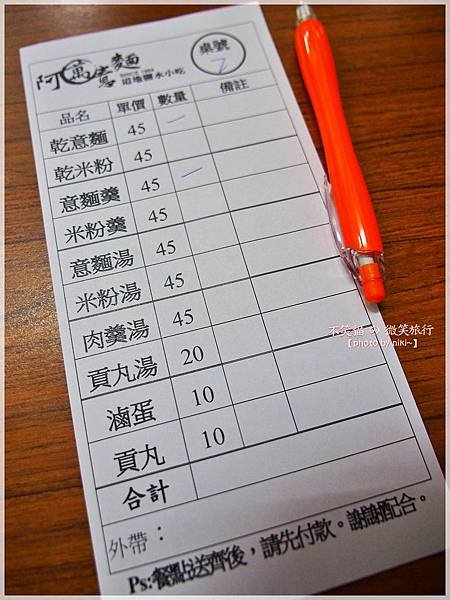 阿萬意麵
SINCE 1954
沿地鹽水小吃
桌號
2
品名 單價 數量 備註
乾意麵 45 一
乾米粉 45
意麵羹 45 一
米粉羹 45
意麵湯 45
米粉湯 45
肉羹湯 45
貢丸湯 20
滷蛋 10
貢丸 10
合計
外帶：
Ps:餐點送齊後，請先付款。謝謝配合。
不笑貓 の 微笑旅行
【photo by niki~】